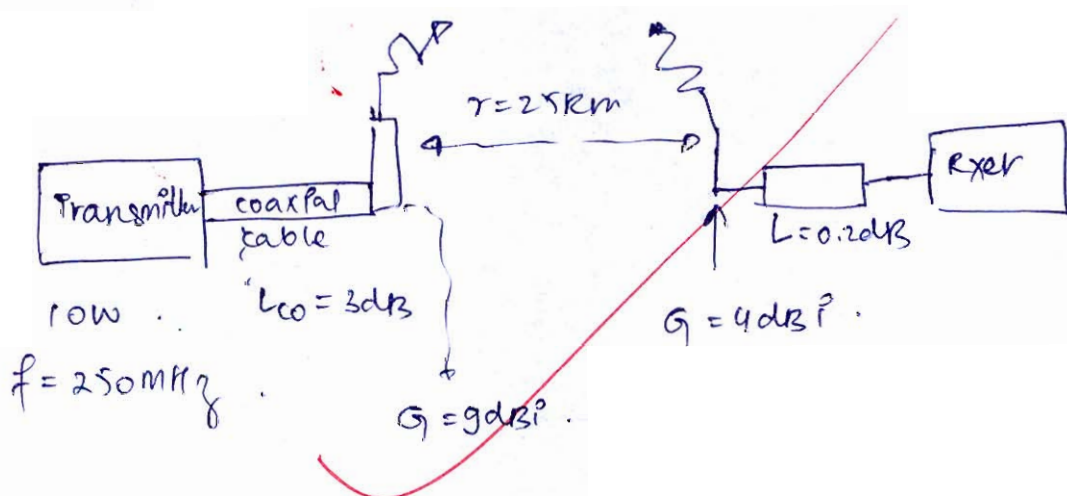 r=25km
Transmitter
coaxial
cable
Rxer
L=0.2dB
10W.
Lco=3dB
G=4dBi.
f=250MHz.
G=9dBi.